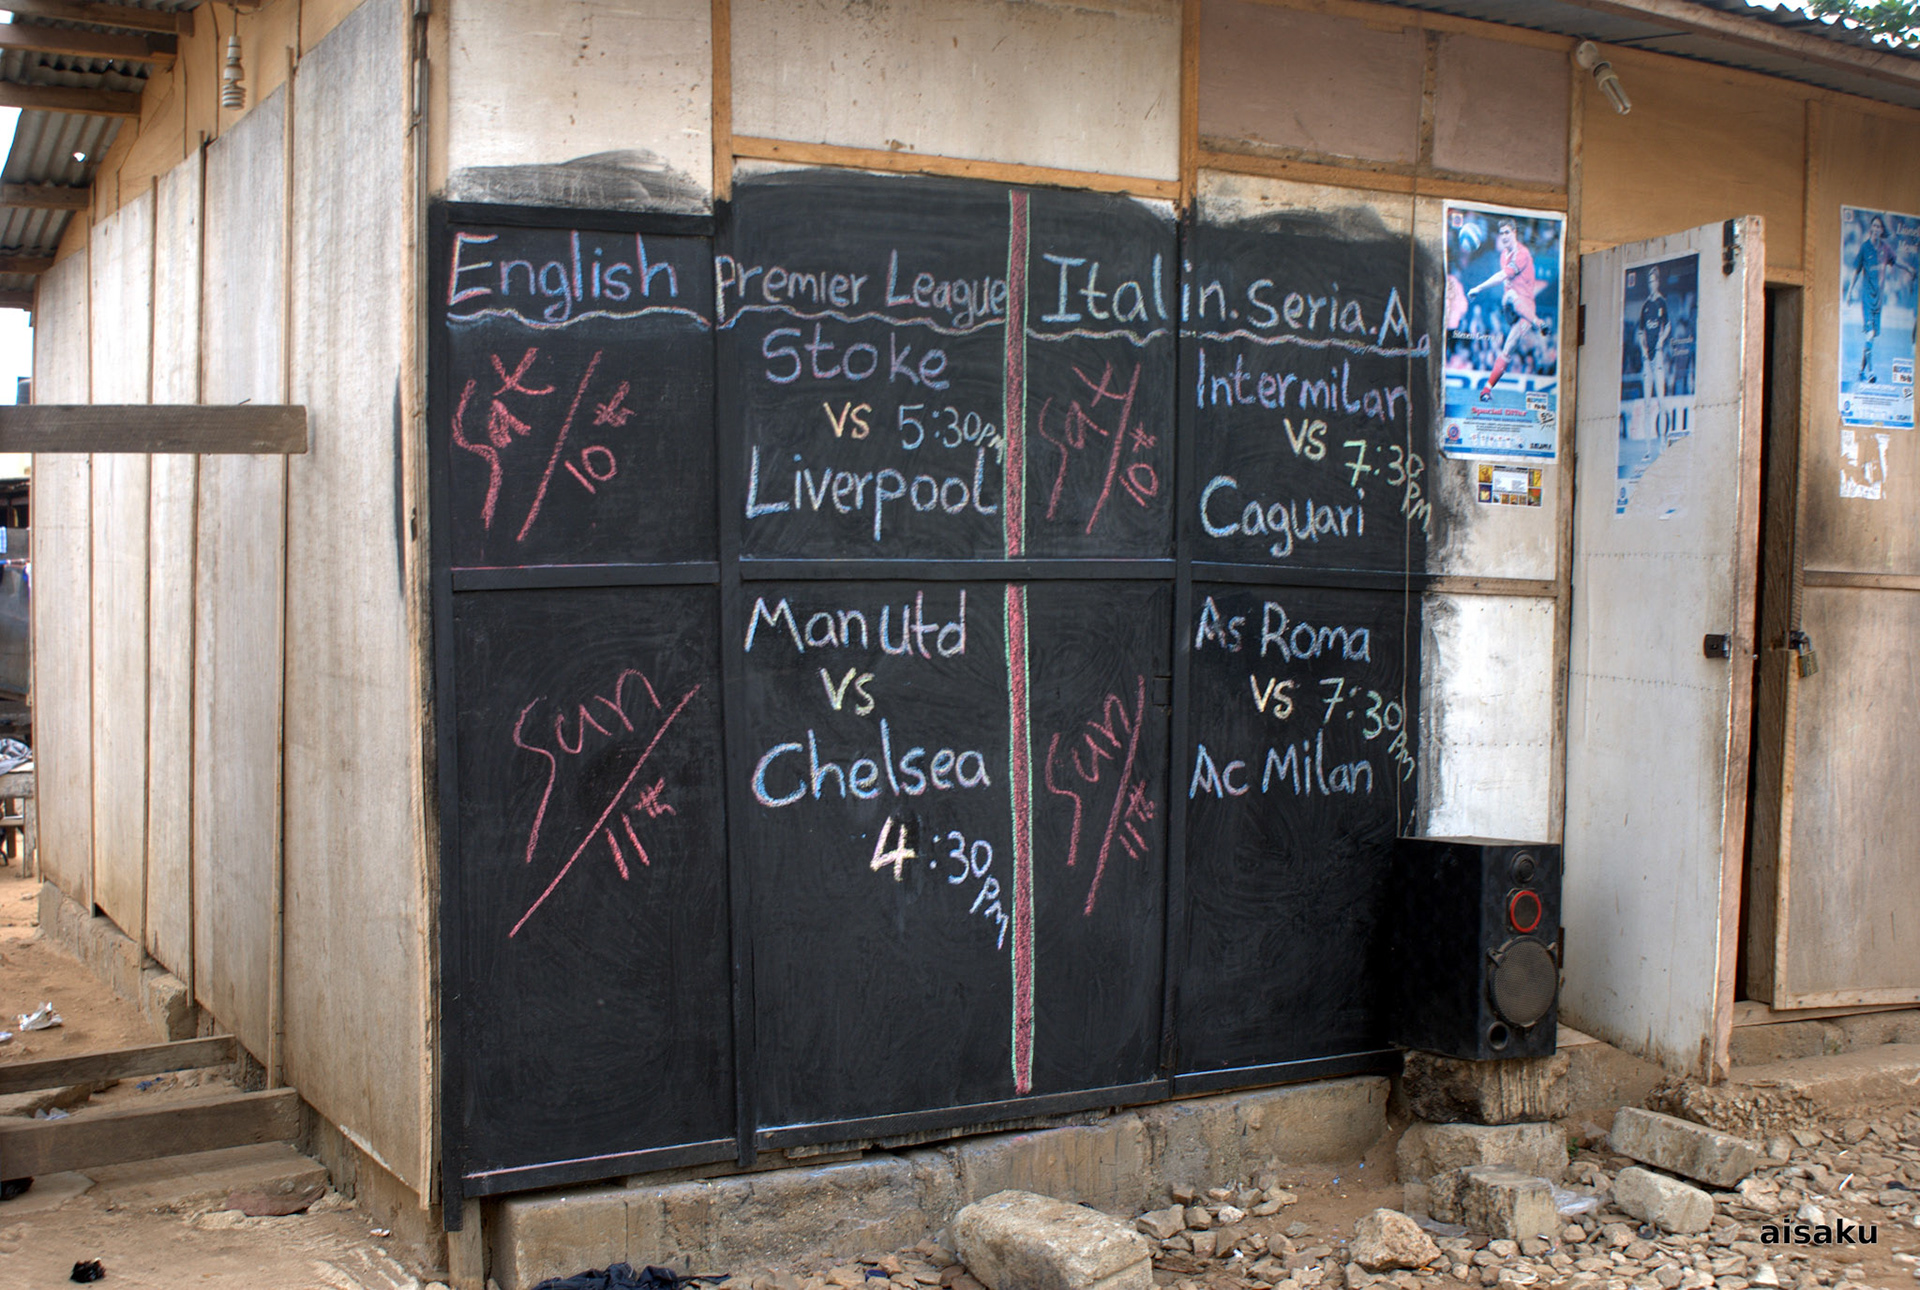 English Premier League
Sat/10th
Stoke
vs 5:30pm
Liverpool
Sun/11th
Man utd
vs
Chelsea
4:30pm
Italin. Seria. A
Sat/10th
Intermilan
vs 7:30pm
Caguari
Sun/11th
As Roma
vs 7:30pm
Ac Milan
Special Offer
aisaku